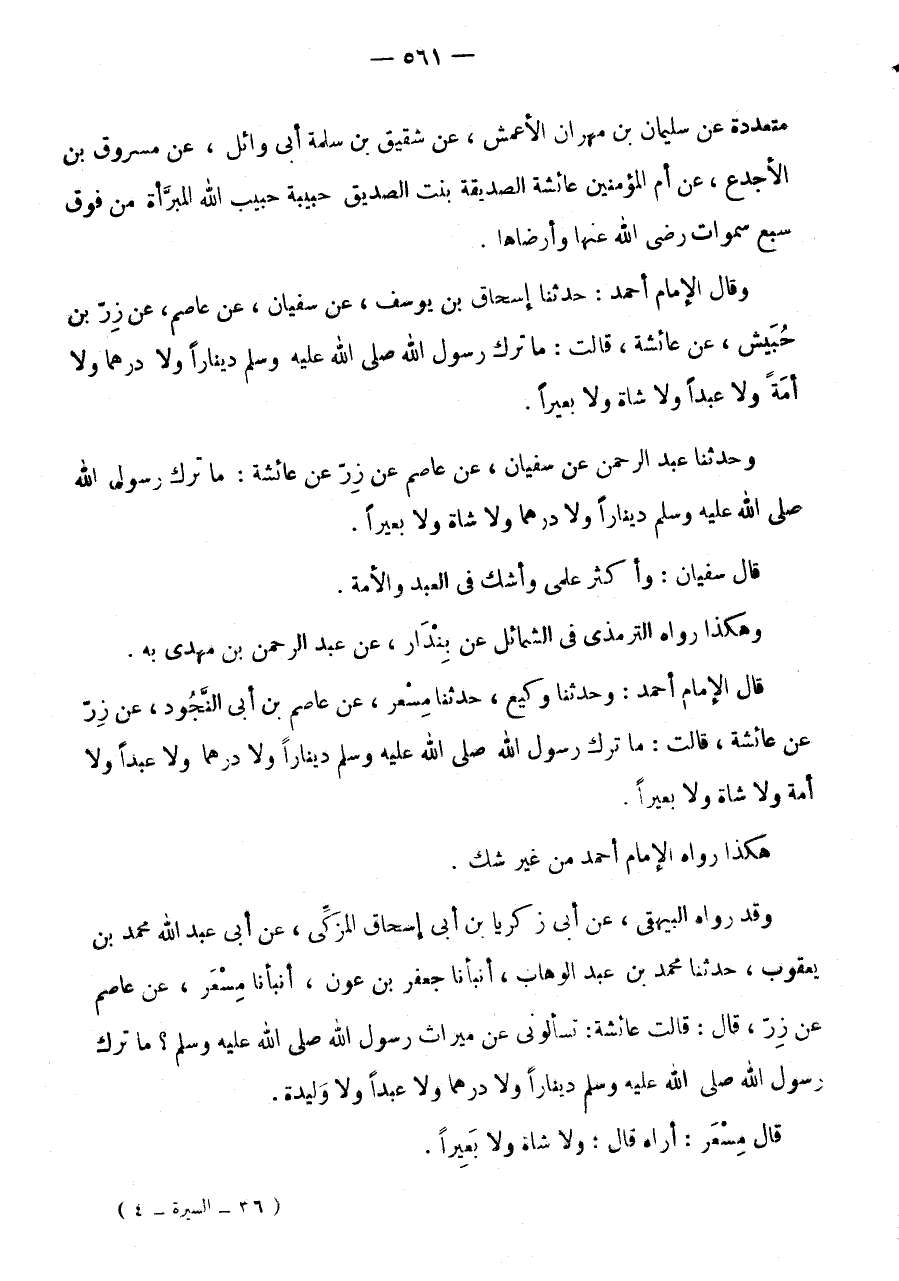 — ٥٦١ —
متعددة عن سليمان بن مهران الأعمش ، عن شقيق بن سلمة أبى وائل ، عن مسروق بن
الأجدع ، عن أم المؤمنين عائشة الصديقة بنت الصديق حبيبة حبيب الله المبرَّأة من فوق
سبع سموات رضى الله عنها وأرضاها .
وقال الإمام أحمد : حدثنا إسحاق بن يوسف ، عن سفيان ، عن عاصم، عن زِرّ بن
حُبَيش ، عن عائشة ، قالت : ما ترك رسول الله صلى الله عليه وسلم ديناراً ولا درهما ولا
أمَةً ولا عبداً ولا شاة ولا بعيراً .
وحدثنا عبد الرحمن عن سفيان ، عن عاصم عن زِرّ عن عائشة : ما ترك رسول الله
صلى الله عليه وسلم ديناراً ولا درهما ولا شاة ولا بعيراً .
قال سفيان : وأكثر علمى وأشك فى العبد والأمة .
وهكذا رواه الترمذى فى الشمائل عن بِنْدَار ، عن عبد الرحمن بن مهدى به .
قال الإمام أحمد : وحدثنا وكيع ، حدثنا مِسْعر ، عن عاصم بن أبى النَّجُود ، عن زِرّ
عن عائشة ، قالت : ما ترك رسول الله صلى الله عليه وسلم ديناراً ولا درهما ولا عبداً ولا
أمة ولا شاة ولا بعيراً .
هكذا رواه الإمام أحمد من غير شك .
وقد رواه البيهقى ، عن أبى زكريا بن أبى إسحاق المزكِّى ، عن أبى عبد الله محمد بن
يعقوب ، حدثنا محمد بن عبد الوهاب ، أنبأنا جعفر بن عون ، أنبأنا مِسْعَر ، عن عاصم
عن زِرّ ، قال : قالت عائشة: تسألونى عن ميراث رسول الله صلى الله عليه وسلم ؟ ما ترك
رسول الله صلى الله عليه وسلم ديناراً ولا درهما ولا عبداً ولا وَليدة .
قال مِسْعَر : أراه قال : ولا شاة ولا بَعِيراً .
( ٣٦ – السيرة – ٤ )